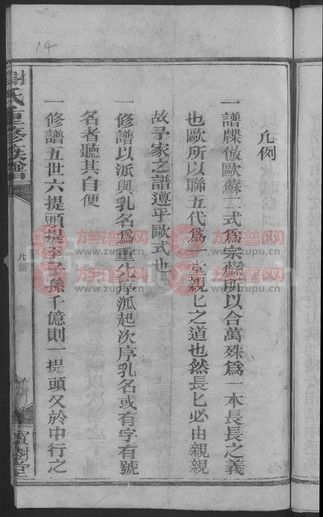 14
凡例
一譜牒倣歐蘇二式爲宗蘇所以合萬殊爲一本長長之義
也歐所以聯五代爲一堂親匕之道也然長匕必由親親
故予家之譜遵乎歐式也
一修譜以派與乳名爲重先序派起次序乳名或有字有號
名者聽其自便
一修譜五世六提頭提至子孫千億則一提頭又於中行之
謝氏重修族譜
凡例
寶樹堂
族譜网
www.zupu.cn
族譜网
www.zupu.cn
族譜网
www.zupu.cn
族譜网
www.zupu.cn